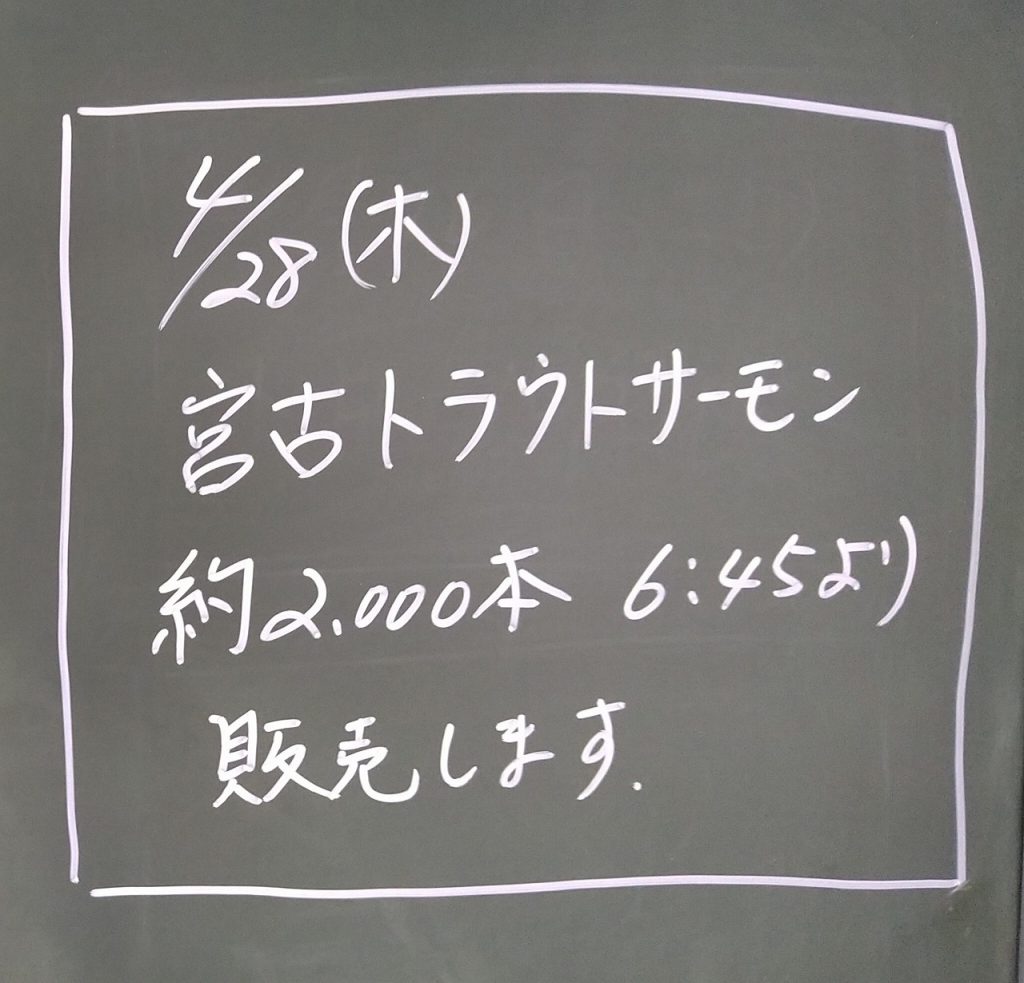 4/28(木)
宮古トラウトサーモン
約2.000本 6:45より
販売します.